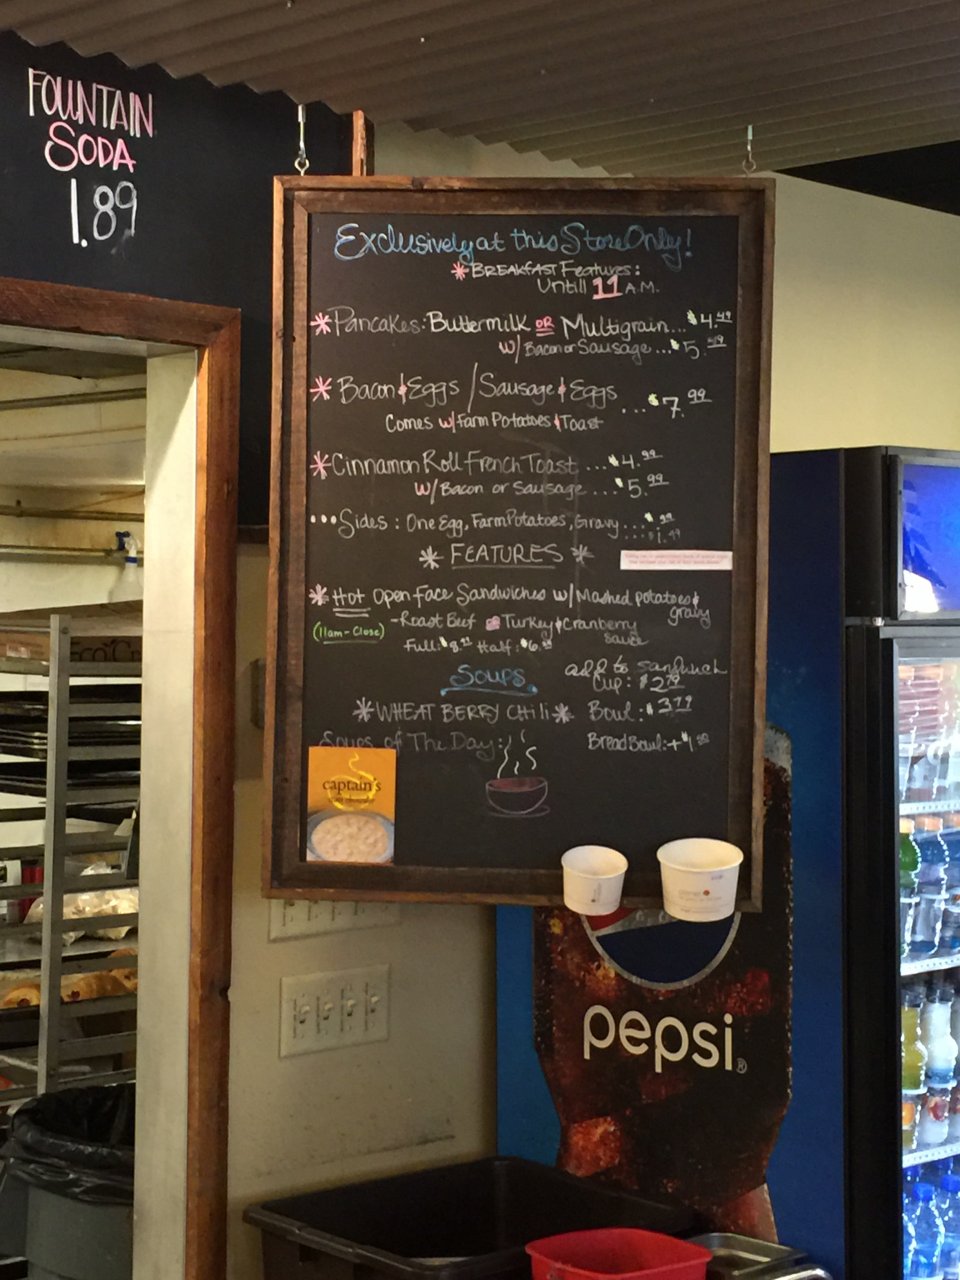 FOUNTAIN
SODA
1.89
Exclusively at this Store Only!
*BREAKFAST Features:
Untill 11 A.M.
*Pancakes: Buttermilk OR Multigrain... $4.49
w/ Bacon or Sausage ... $5.49
*Bacon & Eggs / Sausage & Eggs ... $7.99
Comes w/ Farm Potatoes & Toast
*Cinnamon Roll French Toast ... $4.99
w/ Bacon or Sausage ... $5.99
...Sides: One Egg, Farm Potatoes, Gravy ....
* FEATURES *
*Hot Open Face Sandwiches w/ Mashed potatoes &
gravy
(11am-Close)
-Roast Beef or Turkey & Cranberry
sauce
Full: Half:
Soups
add to sandwich
Cup: $2.79
*WHEAT BERRY Chili*
Bowl: $3.79
Soups of The Day:
Bread Bowl: +
captain's
pepsi